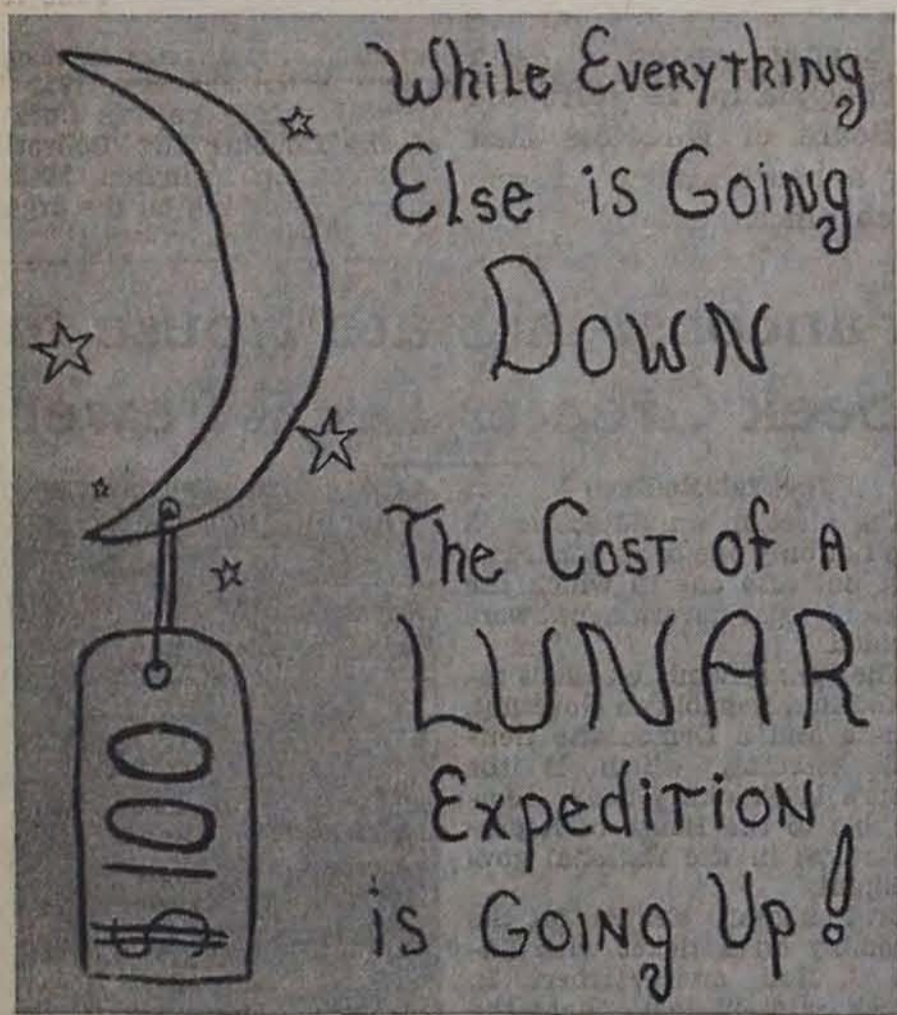 While Everything
Else is Going
Down
The Cost of a
LUNAR
Expedition
is Going Up!
$100